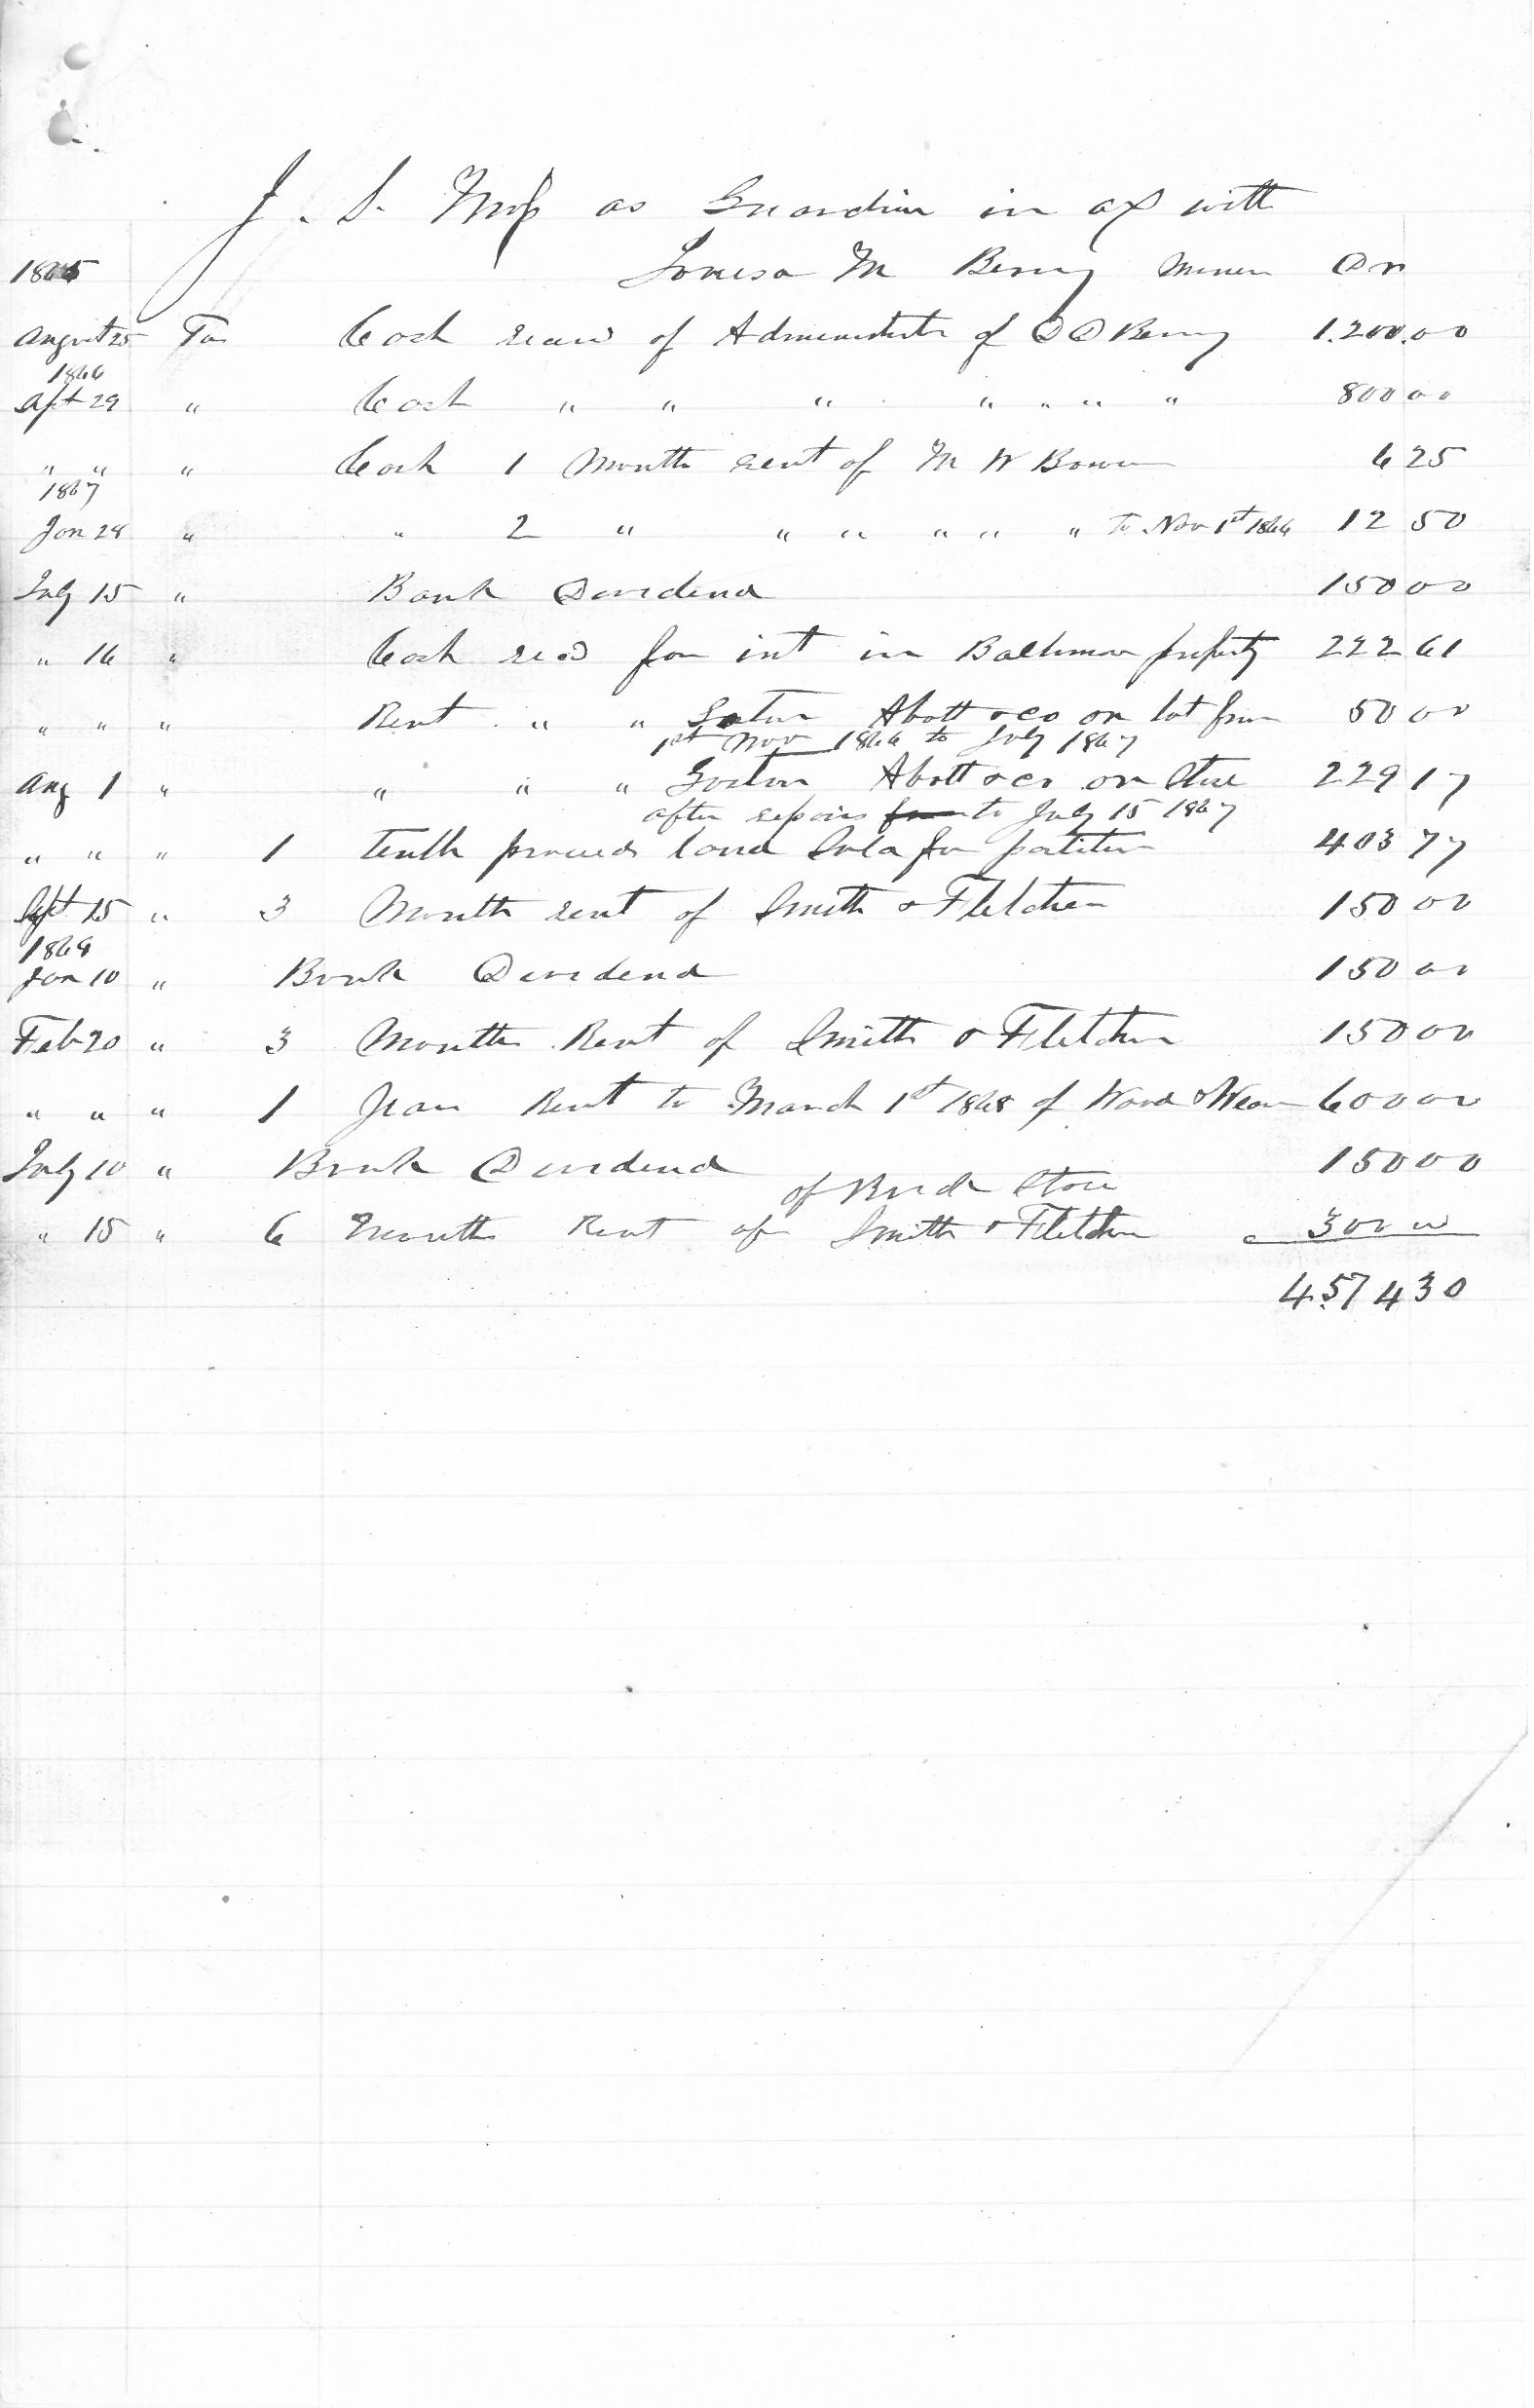 J. S. as Guardian in ac with
1865 Louisa M Berry minor Dr
August 25 To Cash recd of Administrator of D D Berry 1.200.00
1866
Sept 29 " Cash " " " " " " " 800 00
" " " Cash 1 Month rent of M W Bowen 6 25
1867
Jan 28 " " 2 " " " " " " to Nov 1st 1866 12 50
July 15 " Bank Dividend 150 00
" 16 " Cash recd for int in Baltimore property 222 61
" " " Rent " " Abott & co on lot from 50 00
1st Nov 1866 to July 1867
Aug 1 " " " " Abott & co on Store 229 17
after repairs from to July 15 1867
" " " 1 tenth proceeds land sold for partition 403 77
Sept 15 " 3 Month rent of Smith & Fletcher 150 00
1868
Jan 10 " Bank Dividend 150 00
Feb 20 " 3 Months Rent of Smith & Fletcher 150 00
" " " 1 Year Rent to March 1st 1868 of & 600 00
July 10 " Bank Dividend 150 00
of Store
" 15 " 6 Months Rent of Smith & Fletcher 300 00
4.574 30